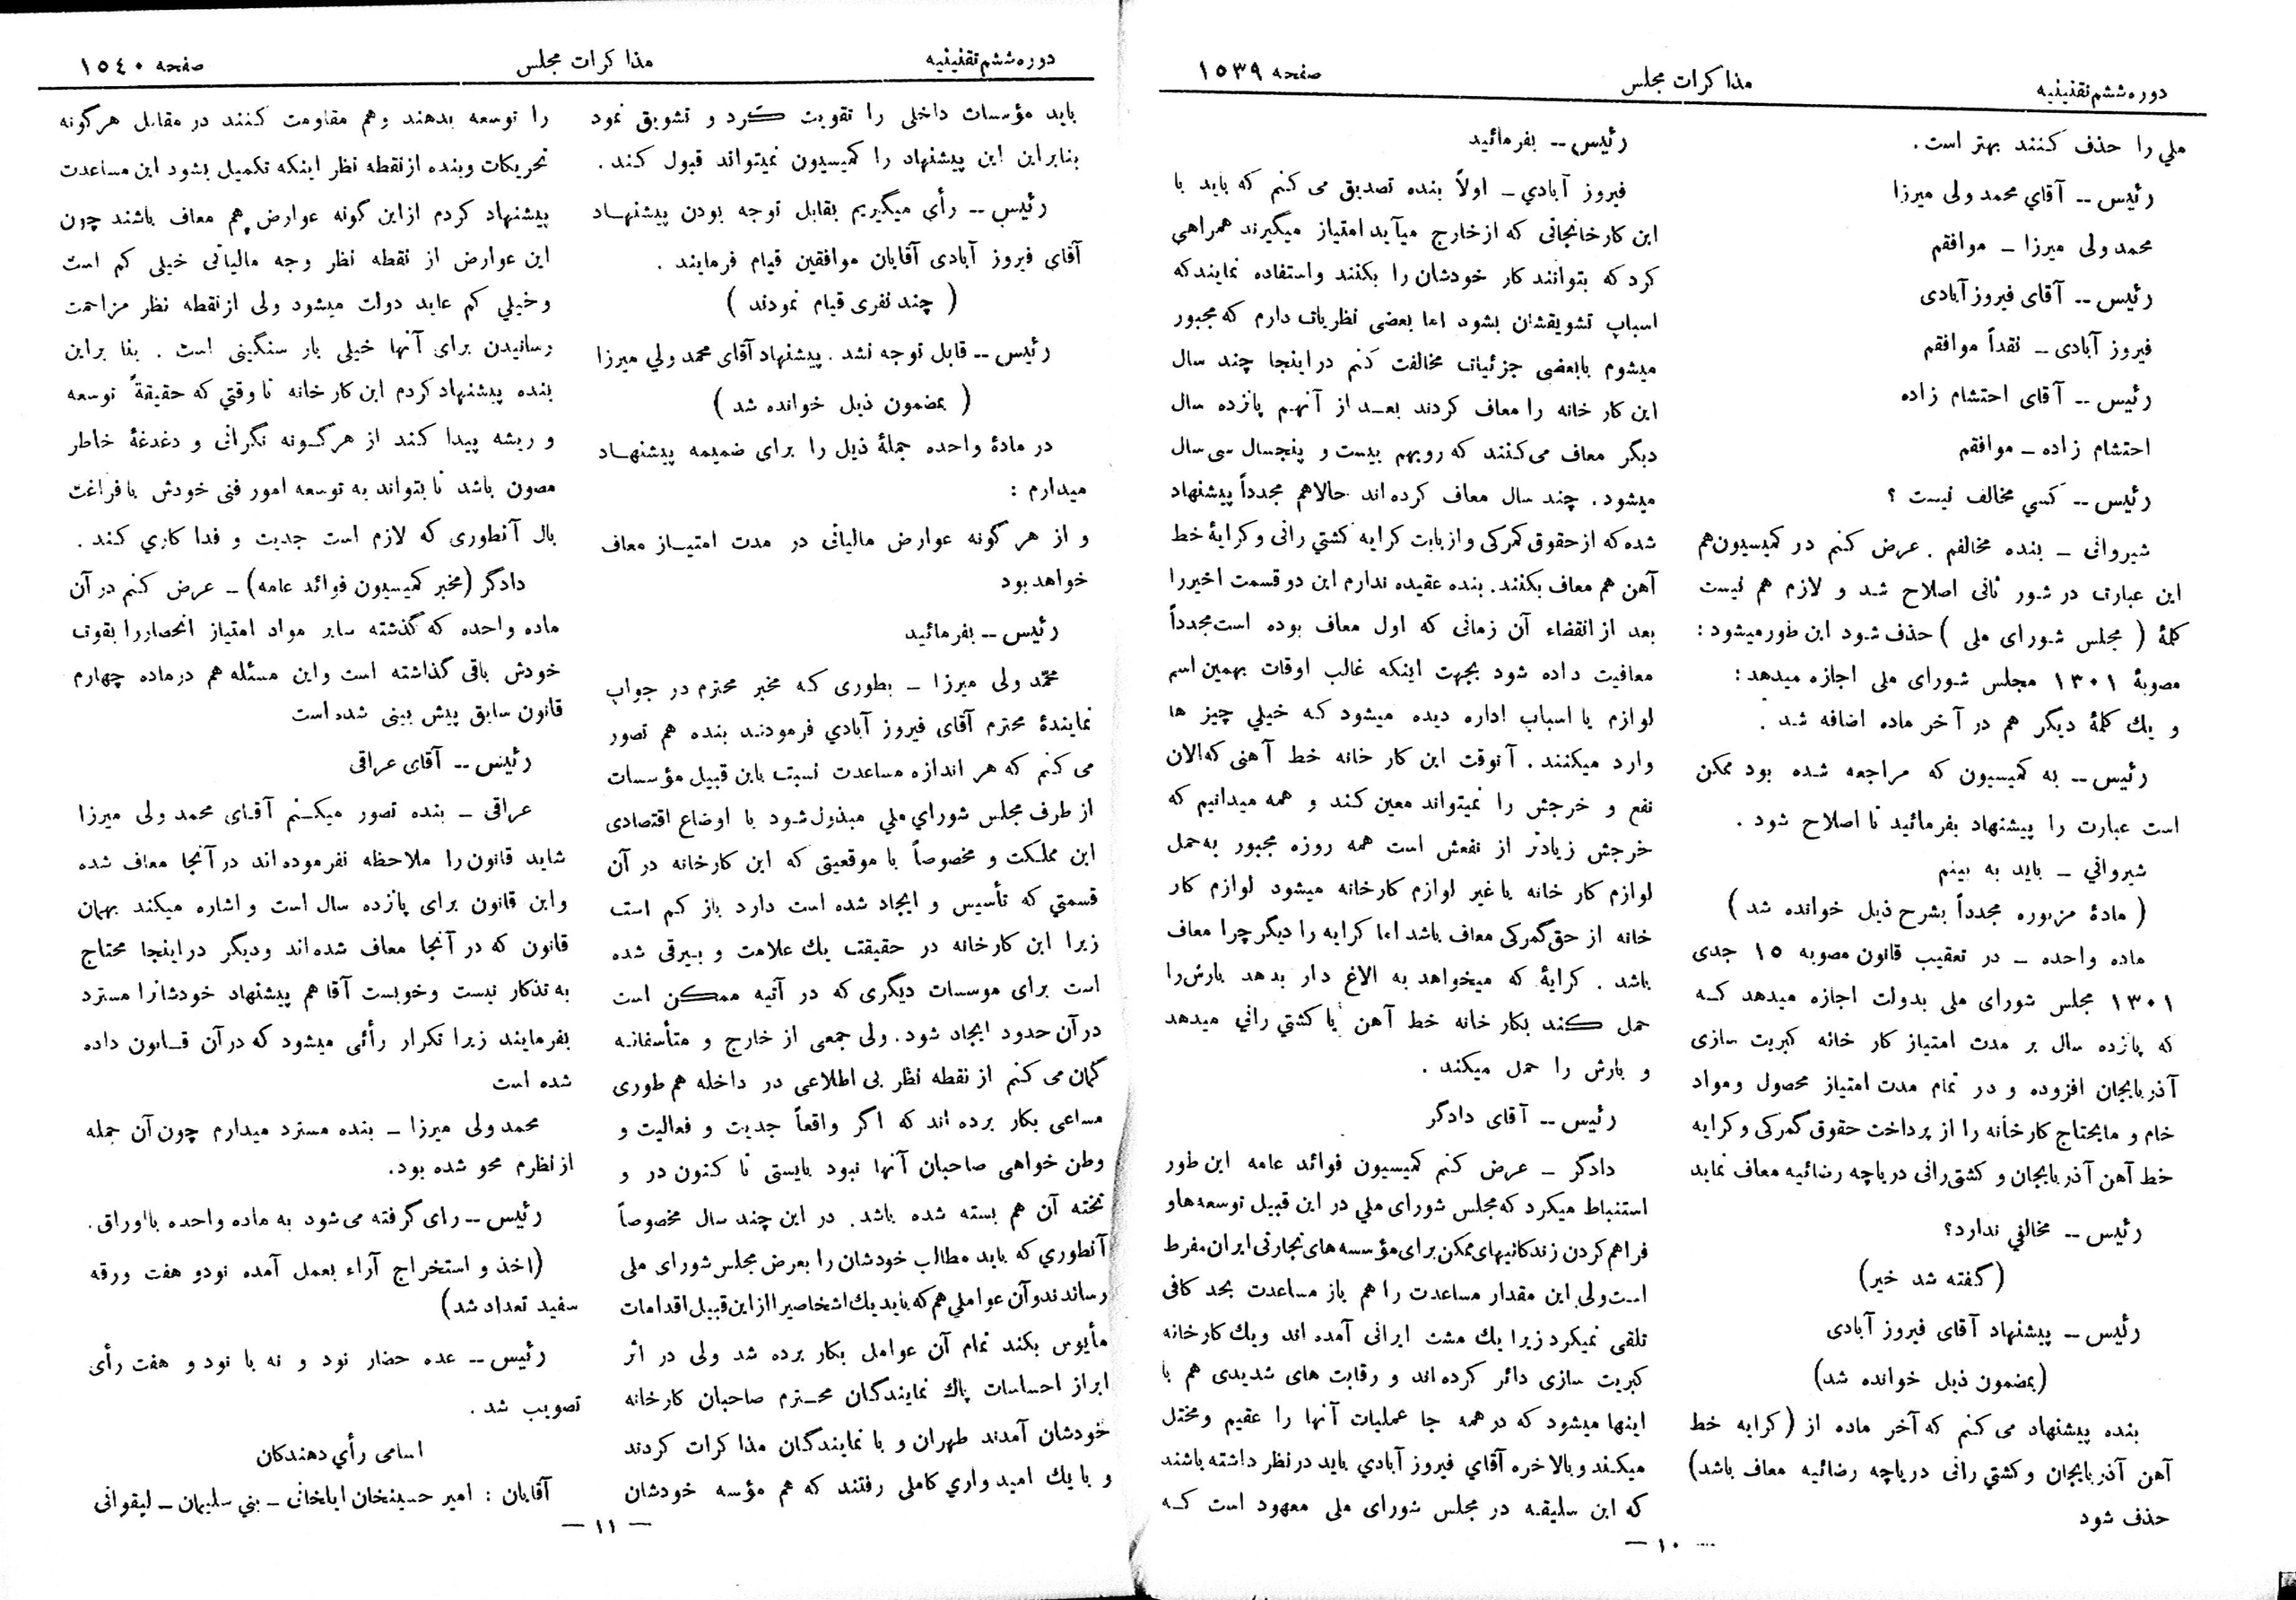 دوره ششم تقنینیه
مذاکرات مجلس
صفحه ۱۵۳۹
ملي را حذف کنند بهتر است.
رئیس -- آقاي محمد ولی میرزا
محمد ولی میرزا - موافقم
رئیس -- آقای فیروز آبادی
فیروز آبادی - نقداً موافقم
رئیس -- آقای احتشام زاده
احتشام زاده - موافقم
رئیس -- کسي مخالف نیست ؟
شیروانی - بنده مخالفم . عرض کنم در کمیسیون هم
این عبارت در شور ثانی اصلاح شد و لازم هم نیست
کلمهٔ ( مجلس شورای ملی ) حذف شود این طور میشود :
مصوبهٔ ۱۳۰۱ مجلس شورای ملی اجازه میدهد :
و یك کلمهٔ دیگر هم در آخر ماده اضافه شد .
رئیس -- به کمیسیون که مراجعه شده بود ممکن
است عبارت را پیشنهاد بفرمائید تا اصلاح شود .
شیرواني - باید به بینم
( مادهٔ مزبوره مجدداً بشرح ذیل خوانده شد )
ماده واحده - در تعقیب قانون مصوبه ۱۵ جدی
۱۳۰۱ مجلس شورای ملی بدولت اجازه میدهد که
که پانزده سال بر مدت امتیاز کار خانه کبریت سازی
آذربایجان افزوده و در تمام مدت امتیاز محصول و مواد
خام و مایحتاج کارخانه را از پرداخت حقوق گمرکی و کرایه
خط آهن آذربایجان و کشتی رانی دریاچه رضائیه معاف نماید
رئیس -- مخالفي ندارد؟
(گفته شد خیر)
رئیس -- پیشنهاد آقای فیروز آبادی
(بمضمون ذیل خوانده شد)
بنده پیشنهاد می کنم که آخر ماده از (کرایه خط
آهن آذربایجان و کشتي رانی دریاچه رضائیه معاف باشد)
حذف شود
رئیس -- بفرمائید
فیروز آبادي - اولاً بنده تصدیق می کنم که باید با
این کارخانجاتی که از خارج میآید امتیاز میگیرند همراهي
کرد که بتوانند کار خودشان را بکنند و استفاده نمایند که
اسباب تشویقشان بشود اما بعضی نظریات دارم که مجبور
میشوم با بعضی جزئیات مخالفت کنم در اینجا چند سال
این کار خانه را معاف کردند بعد از آنهم پانزده سال
دیگر معاف می کنند که رویهم بیست و پنجسال سی سال
میشود . چند سال معاف کرده اند حالا هم مجدداً پیشنهاد
شده که از حقوق گمرکی و از بابت کرایه کشتي رانی و کرایهٔ خط
آهن هم معاف بکنند. بنده عقیده ندارم این دو قسمت اخیر را
بعد از انقضاء آن زمانی که اول معاف بوده است مجدداً
معافیت داده شود بجهت اینکه غالب اوقات بهمین اسم
لوازم یا اسباب اداره دیده میشود که خیلي چیز ها
وارد میکنند . آنوقت این کار خانه خط آهنی که الان
نفع و خرجش را نمیتواند معین کند و همه میدانیم که
خرجش زیادتر از نفعش است همه روزه مجبور به حمل
لوازم کار خانه یا غیر لوازم کارخانه میشود لوازم کار
خانه از حق گمرکی معاف باشد اما کرایه را دیگر چرا معاف
باشد . کرایهٔ که میخواهد به الاغ دار بدهد بارش را
حمل کند بکار خانه خط آهن یا کشتي راني میدهد
و بارش را حمل میکند .
رئیس -- آقای دادگر
دادگر - عرض کنم کمیسیون فوائد عامه این طور
استنباط میکرد که مجلس شورای ملي در این قبیل توسعه ها و
فراهم کردن زندگانیهای ممکن برای مؤسسه های تجارتی ایران مفرط
است ولی این مقدار مساعدت را هم باز مساعدت بحد کافی
تلقی نمیکرد زیرا یك مشت ایرانی آمده اند و یك کارخانه
کبریت سازی دائر کرده اند و رقابت های شدیدی هم با
اینها میشود که در همه جا عملیات آنها را عقیم و مختل
میکند و بالاخره آقاي فیروز آبادي باید در نظر داشته باشند
که این سلیقه در مجلس شورای ملی معهود است که
— ۱۰ —
دوره ششم تقنینیه
مذاکرات مجلس
صفحه ۱۵٤۰
باید مؤسسات داخلی را تقویت کرد و تشویق نمود
بنابراین این پیشنهاد را کمیسیون نمیتواند قبول کند .
رئیس -- رأی میگیریم بقابل توجه بودن پیشنهاد
آقای فیروز آبادی آقایان موافقین قیام فرمایند .
( چند نفری قیام نمودند )
رئیس -- قابل توجه نشد . پیشنهاد آقای محمد ولي میرزا
( بمضمون ذیل خوانده شد )
در مادهٔ واحده جملهٔ ذیل را برای ضمیمه پیشنهاد
میدارم :
و از هر گونه عوارض مالیاتی در مدت امتیاز معاف
خواهد بود
رئیس -- بفرمائید
محمّد ولی میرزا - بطوری که مخبر محترم در جواب
نمایندهٔ محترم آقای فیروز آبادي فرمودند بنده هم تصور
می کنم که هر اندازه مساعدت نسبت باین قبیل مؤسسات
از طرف مجلس شوراي ملي مبذول شود با اوضاع اقتصادی
این مملکت و مخصوصاً با موقعیتی که این کارخانه در آن
قسمتي که تأسیس و ایجاد شده است دارد باز کم است
زیرا این کارخانه در حقیقت یك علامت و بیرقی شده
است برای موسسات دیگری که در آتیه ممکن است
در آن حدود ایجاد شود . ولی جمعی از خارج و متأسفانه
گمان می کنم از نقطه نظر بی اطلاعی در داخله هم طوری
مساعی بکار برده اند که اگر واقعاً جدیت و فعالیت و
وطن خواهی صاحبان آنها نبود بایستی تا کنون در و
تخته آن هم بسته شده باشد. در این چند سال مخصوصاً
آنطوري که باید مطالب خودشان را بعرض مجلس شورای ملی
رساندند و آن عواملي هم که باید یك اشخاصیرا از این قبیل اقدامات
مأیوس بکند تمام آن عوامل بکار برده شد ولی در اثر
ابراز احساسات پاك نمایندگان محترم صاحبان کارخانه
خودشان آمدند طهران و با نمایندگان مذاکرات کردند
و با یك امید واري کاملی رفتند که هم مؤسه خودشان
را توسعه بدهند وهم مقاومت کنند در مقابل هر گونه
تحریکات وبنده از نقطه نظر اینکه تکمیل بشود این مساعدت
پیشنهاد کردم از این گونه عوارض هم معاف باشند چون
این عوارض از نقطه نظر وجه مالیاتی خیلی کم است
و خیلي کم عاید دولت میشود ولی از نقطه نظر مزاحمت
رسانیدن برای آنها خیلی بار سنگینی است . بنا براین
بنده پیشنهاد کردم این کار خانه تا وقتي که حقیقةً توسعه
و ریشه پیدا کند از هر گونه نگرانی و دغدغهٔ خاطر
مصون باشد تا بتواند به توسعه امور فنی خودش با فراغت
بال آنطوری که لازم است جدیت و فدا کاري کند .
دادگر (مخبر کمیسیون فوائد عامه) - عرض کنم در آن
ماده واحده که گذشته سایر مواد امتیاز انحصار را بقوت
خودش باقی گذاشته است و این مسئله هم در ماده چهارم
قانون سابق پیش بینی شده است
رئیس -- آقای عراقی
عراقی - بنده تصور میکنم آقای محمد ولی میرزا
شاید قانون را ملاحظه نفرموده اند در آنجا معاف شده
واین قانون برای پانزده سال است و اشاره میکند بهمان
قانون که در آنجا معاف شده اند ودیگر در اینجا محتاج
به تذکار نیست و خوبست آقا هم پیشنهاد خودشانرا مسترد
بفرمایند زیرا تکرار رأئی میشود که در آن قانون داده
شده است
محمد ولی میرزا - بنده مسترد میدارم چون آن جمله
از نظرم محو شده بود.
رئیس -- رای گرفته می شود به ماده واحده با اوراق .
(اخذ و استخراج آراء بعمل آمده نود و هفت ورقه
سفید تعداد شد)
رئیس -- عده حضار نود و نه با نود و هفت رأی
تصویب شد .
اسامی رأي دهندگان
آقایان : امیر حسینخان ایلخانی - بني سلیمان - لیقوانی
— ۱۱ —